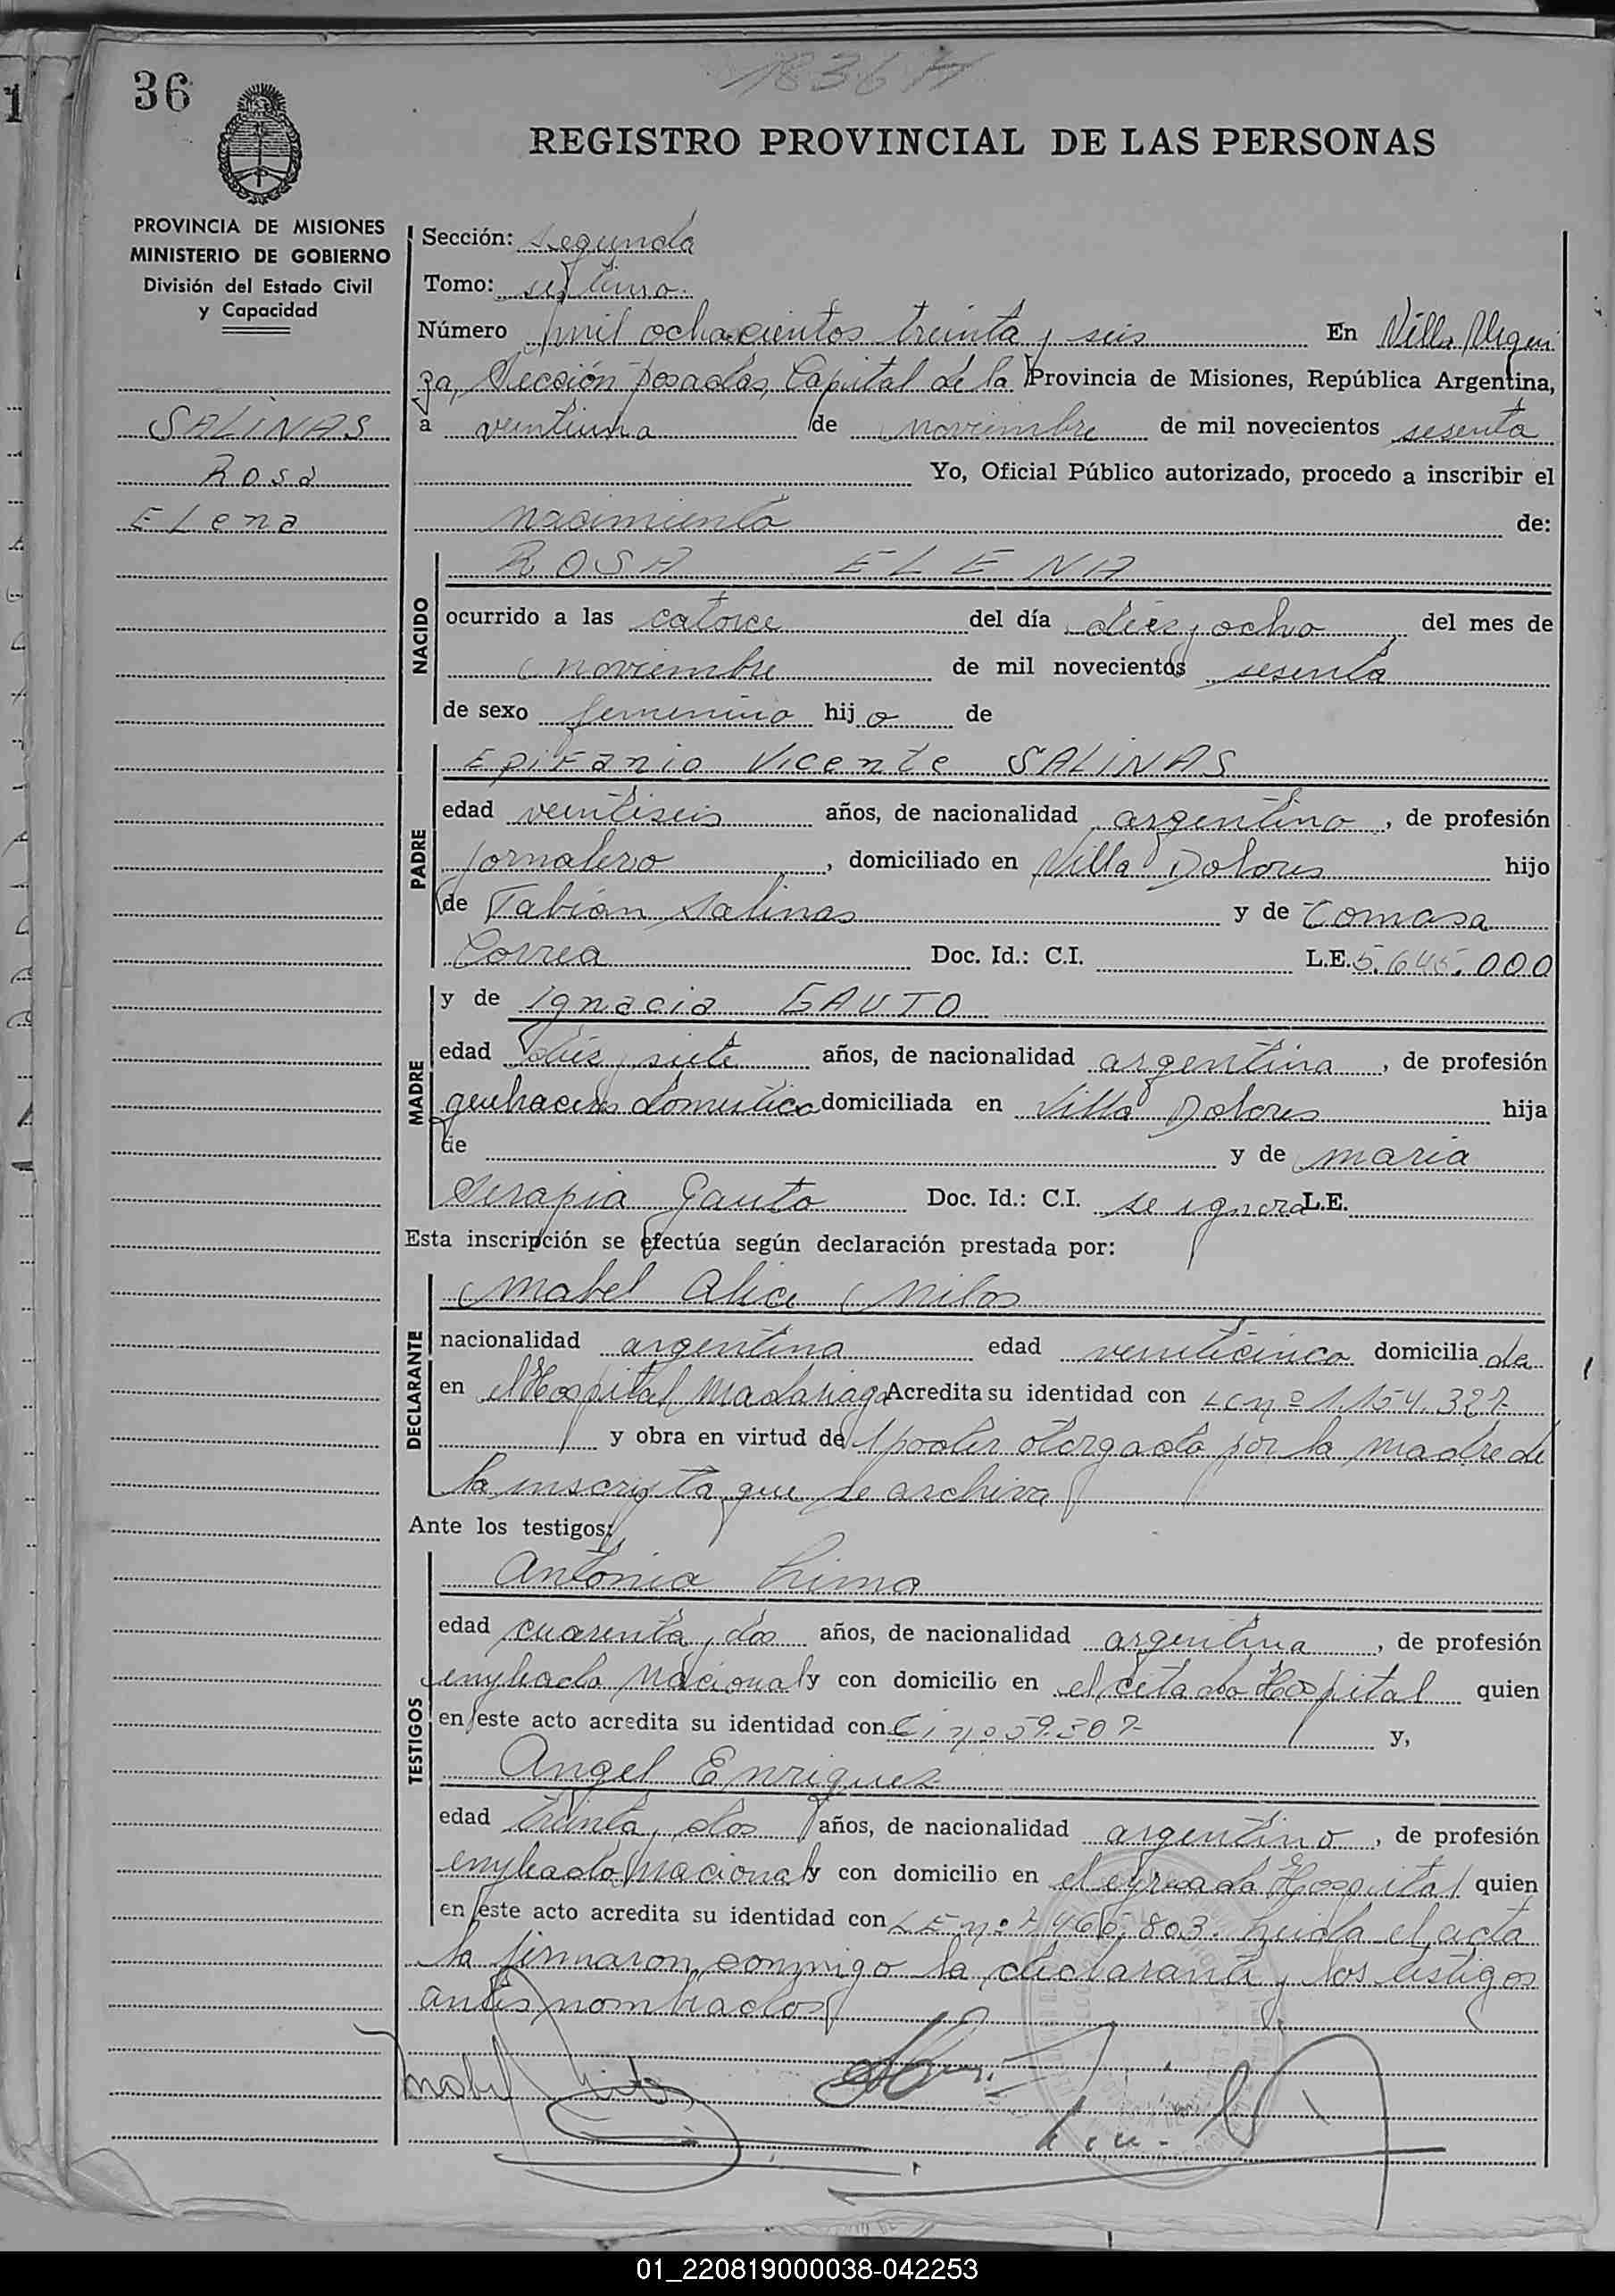 36
REGISTRO PROVINCIAL DE LAS PERSONAS
PROVINCIA DE MISIONES
MINISTERIO DE GOBIERNO
División del Estado Civil
y Capacidad
SALINAS
Rosa
Elena
Sección: segunda
Tomo: septimo
Número mil ochocientos treinta y seis En Villa Urqui
za, Sección Posadas, Capital de la Provincia de Misiones, República Argentina,
a veintiuno de noviembre de mil novecientos sesenta
Yo, Oficial Público autorizado, procedo a inscribir el
nacimiento de:
NACIDO
ROSA ELENA
ocurrido a las catorce del día diez y ocho del mes de
noviembre de mil novecientos sesenta
de sexo femenino hijo de
PADRE
Epifanio Vicente SALINAS
edad veintiseis años, de nacionalidad argentino, de profesión
jornalero, domiciliado en Villa Dolores hijo
de Fabián Salinas y de Tomasa
Correa Doc. Id.: C.I. L.E. 5.645.000
MADRE
y de Ignacia GAUTO
edad diez y siete años, de nacionalidad argentina, de profesión
quehaceres domestico domiciliada en Villa Dolores hija
de y de maria
Serapia Gauto Doc. Id.: C.I. se ignora L.E.
Esta inscripción se efectúa según declaración prestada por:
DECLARANTE
Mabel Alice
nacionalidad argentina edad veinticinco domiciliada
en el Hospital Madariaga Acredita su identidad con LC nº 1.154.327
y obra en virtud de poder otorgado por la madre de
la inscripta que se archiva
Ante los testigos:
TESTIGOS
Antonia Lima
edad cuarenta y dos años, de nacionalidad argentina, de profesión
empleada Nacional y con domicilio en el citado Hospital quien
en este acto acredita su identidad con Ci nº 59.307 y,
Angel Enriquez
edad treinta y dos años, de nacionalidad argentino, de profesión
empleado Nacional y con domicilio en el Hospital quien
en este acto acredita su identidad con LE nº 7.466.803. Leida el acta
la firmaron conmigo la declarante y los testigos
antes nombrados
01_220819000038-042253